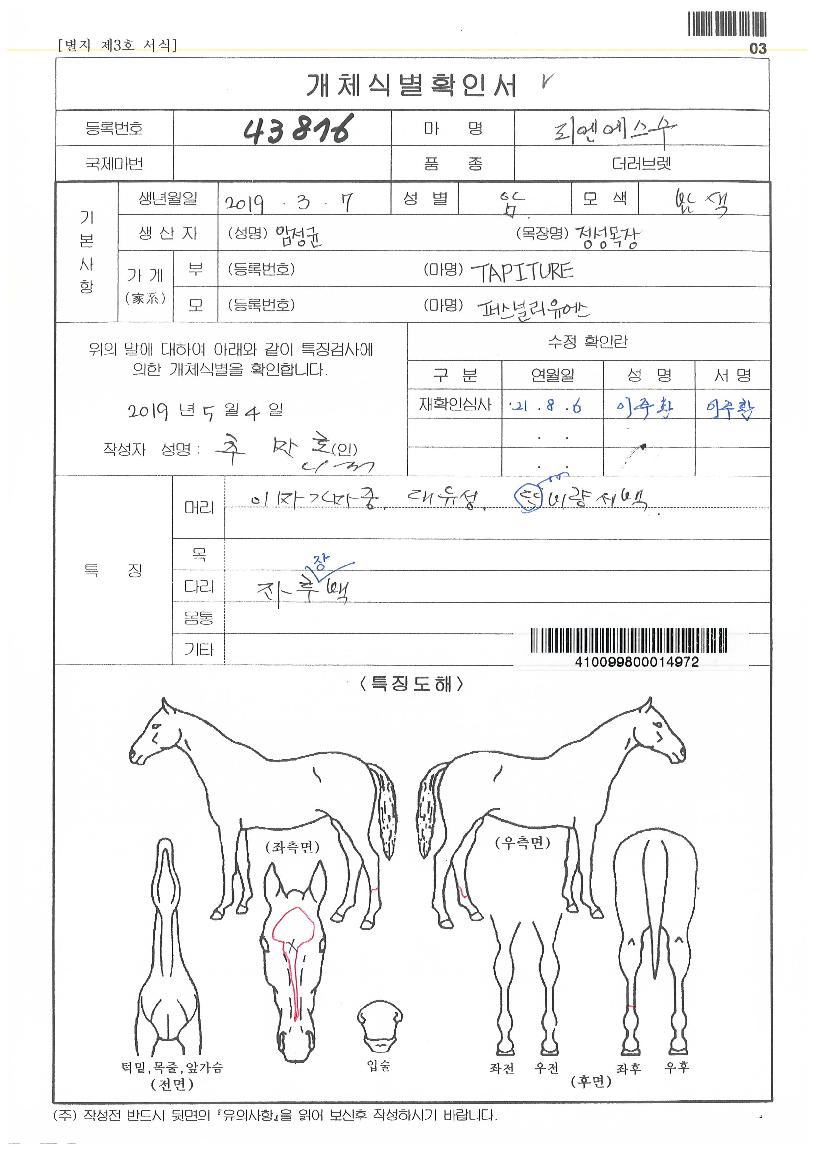 [별지 제3호 서식]
03
개체식별확인서 √
등록번호 43816 마 명 리엔에스수
국제마번 품 종 더러브렛
기본사항
생년월일 2019 . 3 . 7 성 별 암 모 색 밤색
생산자 (성명) 임정균 (목장명) 정성목장
가계(家系) 부 (등록번호) (마명) TAPITURE
모 (등록번호) (마명) 퍼스널리유에스
위의 말에 대하여 아래와 같이 특징검사에
의한 개체식별을 확인합니다.
2019 년 5 월 4 일
작성자 성명 : (인)
수정 확인란
구 분 연월일 성 명 서 명
재확인심사 '21 . 8 . 6 이주환 이주환
. .
. .
특 징
머리 이마가마중, 대유성, 비량세백
목
다리 좌후장백
몸통
기타
410099800014972
<특징도해>
(좌측면)
(우측면)
턱밑,목줄,앞가슴
(전면)
입술
좌전 우전
좌후 우후
(후면)
(주) 작성전 반드시 뒷면의 『유의사항』을 읽어 보신후 작성하시기 바랍니다.